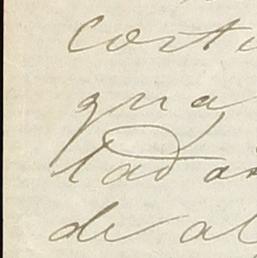 corti
qua
lad
de al